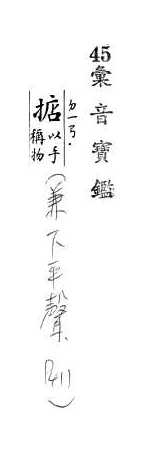 45彙音寶鑑
掂 ㄉㄧㄢ˙
以手
稱物
(兼下平聲 P411)